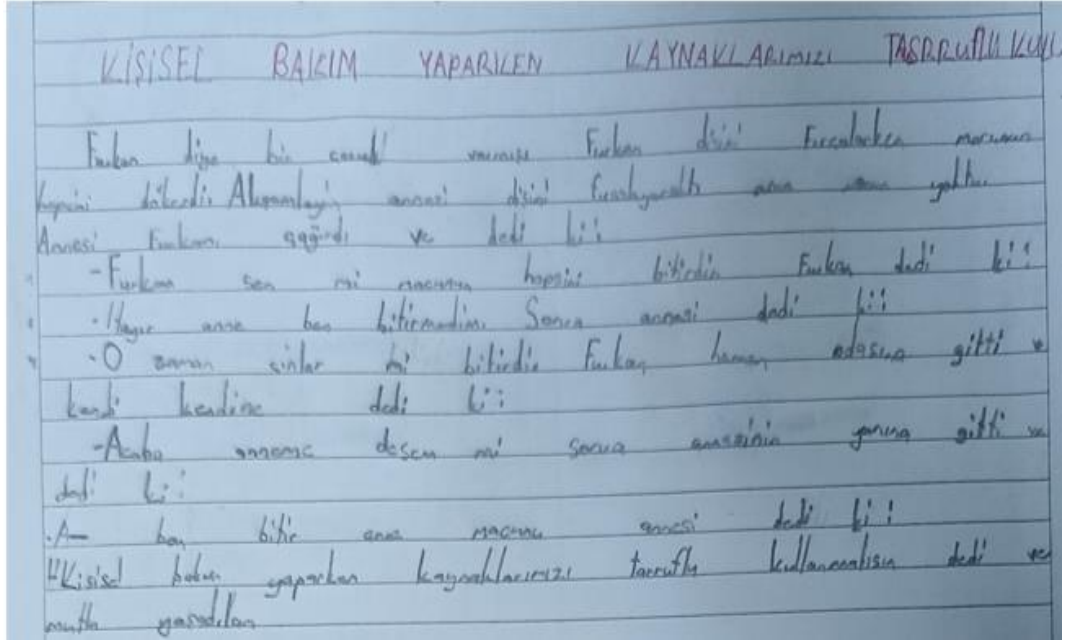 KİŞİSEL BAKIM YAPARKEN KAYNAKLARIMIZI
Furkan diye bir çocuk varmış Furkan dişini Fırçalarken macunun
hepsini Akşamleyin annesi dişini ama yoktu.
Annesi Furkanı çağırdı ve dedi ki:
-Furkan sen mi macunun hepsini bitirdin Furkan dedi ki:
-Hayır anne ben bitirmedim. Sonra annesi dedi ki:
-O zaman cinler mi bitirdi Furkan hemen odasına gitti ve
kendi kendine dedi ki:
-Acaba anneme desem mi sonra yanına gitti ve
dedi ki:
ben bitir anne macunu annesi dedi ki:
Kişisel bakım yaparken kaynaklarımızı dedi ve
mutlu yaşadılar